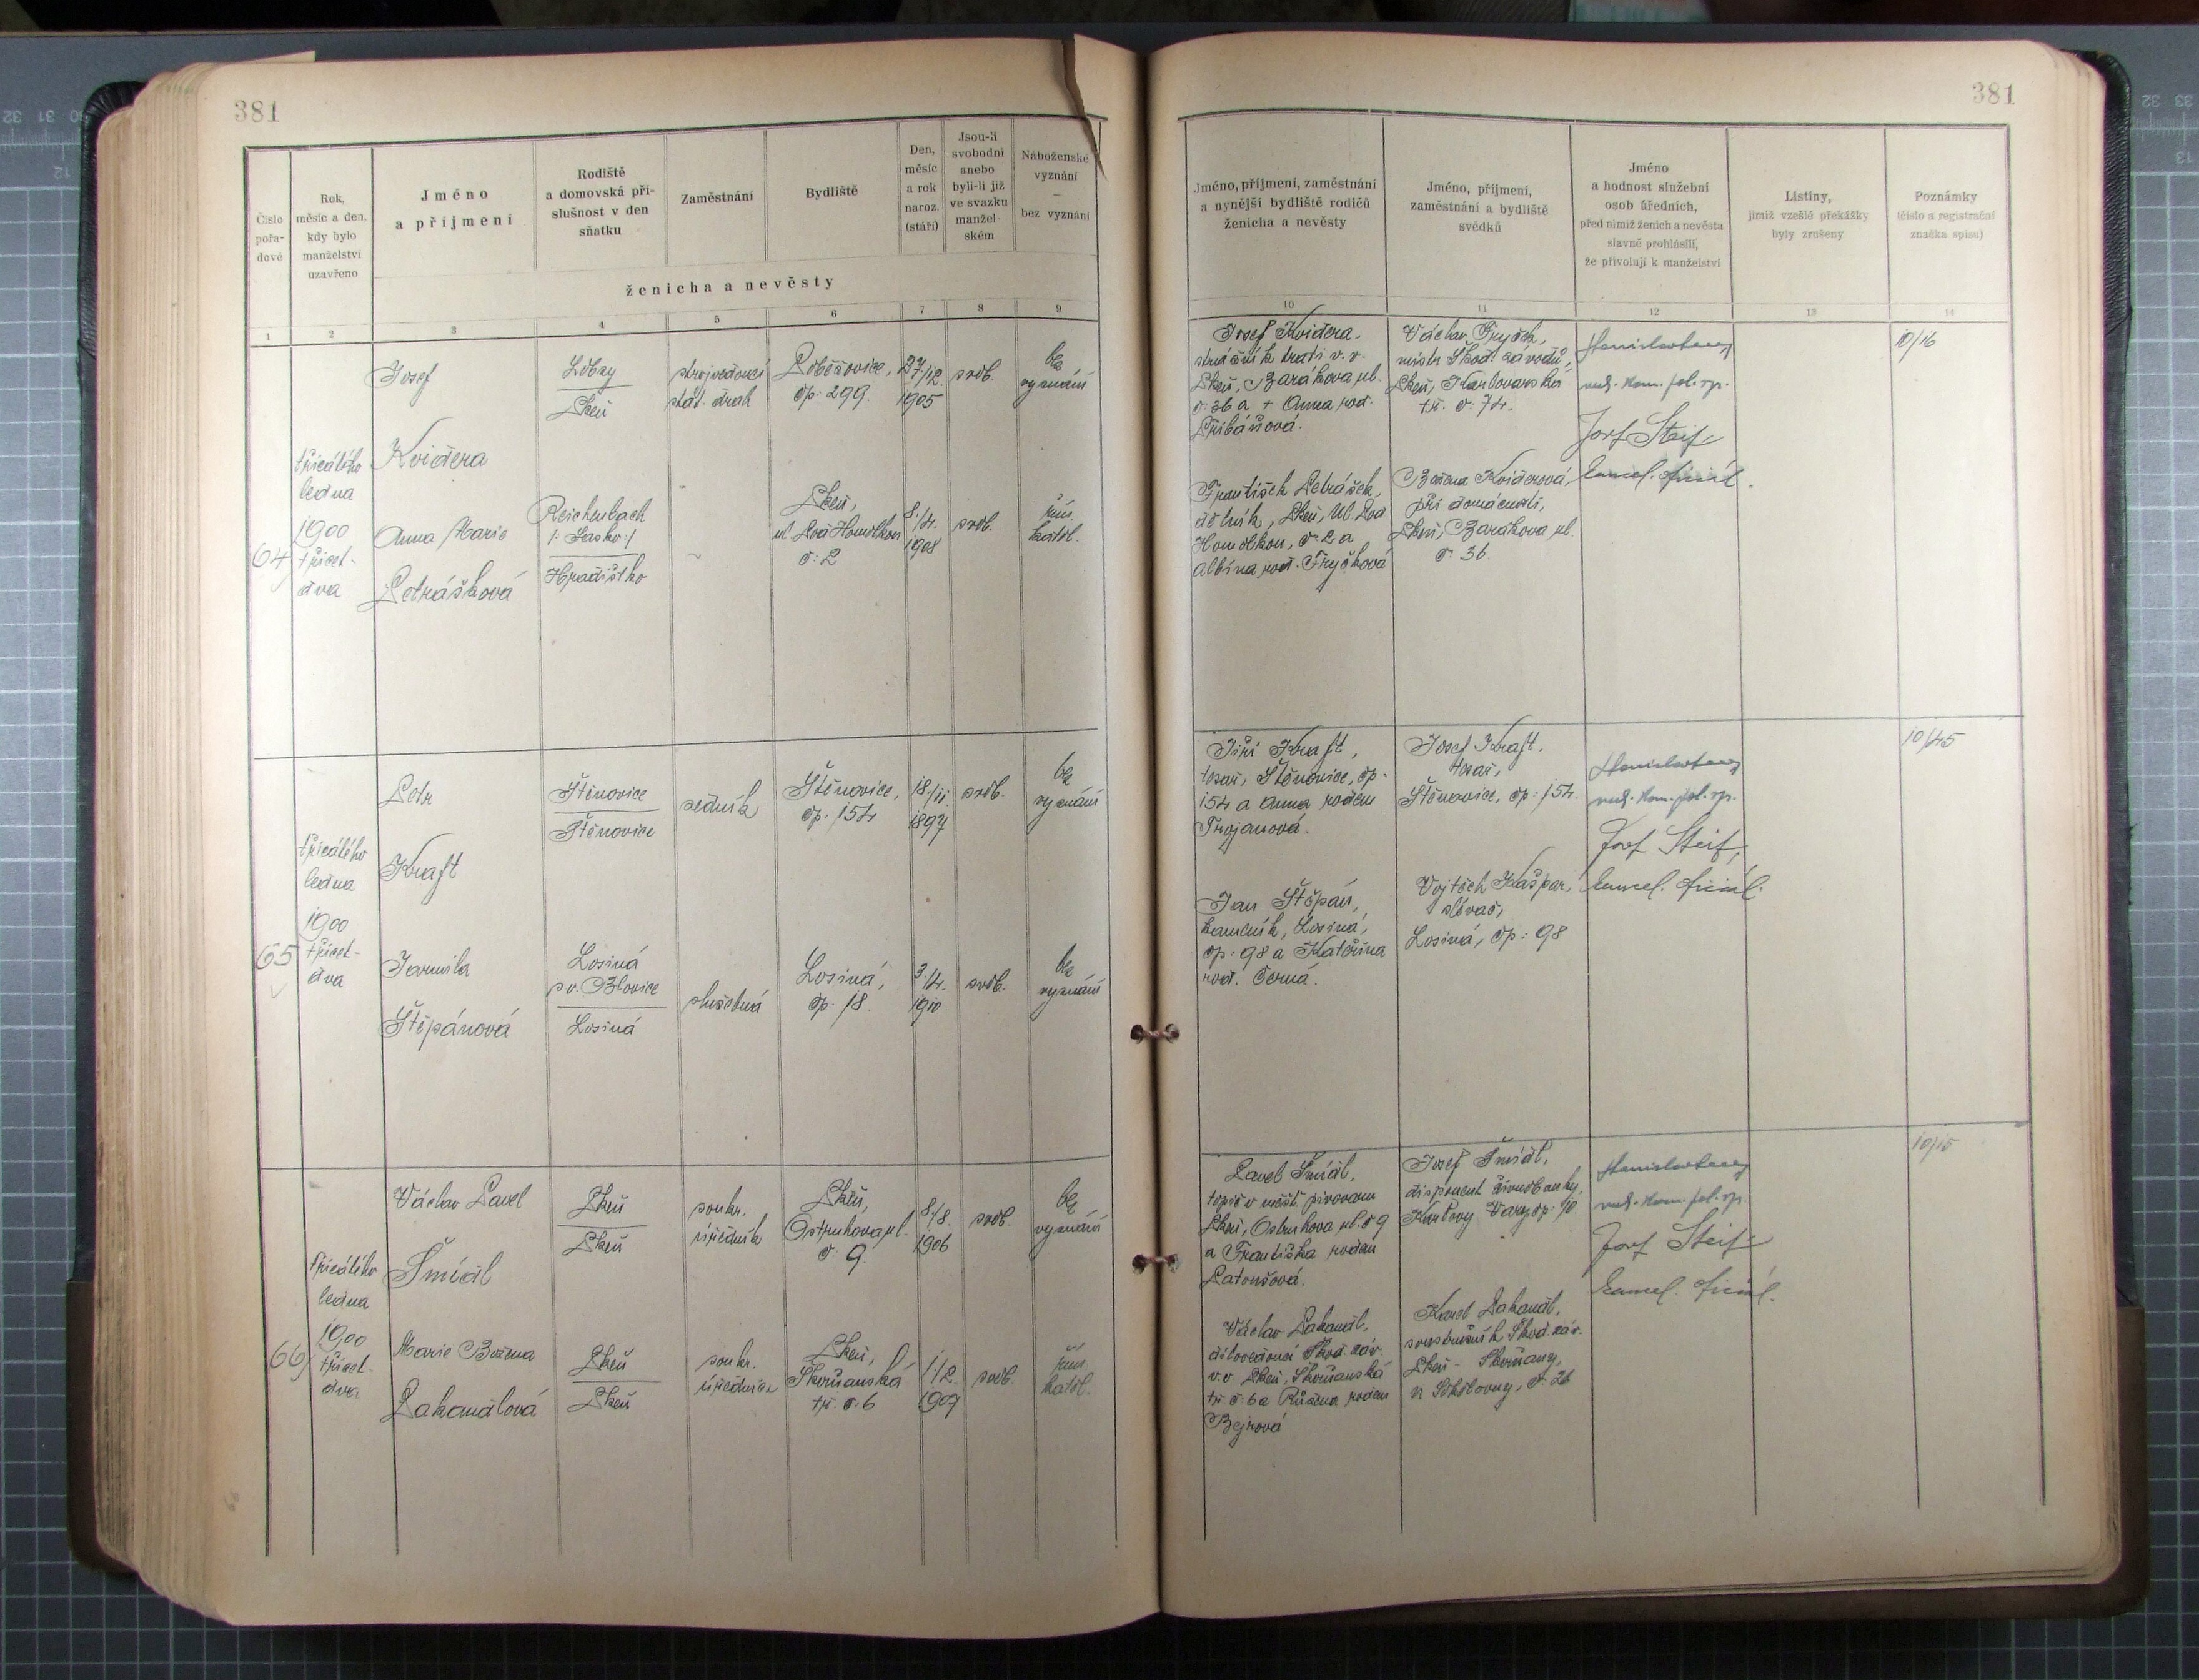 381
381
Číslo
pořa-
dové
Rok,
měsíc a den,
kdy bylo
manželství
uzavřeno
Jméno
a příjmení
Rodiště
a domovská pří-
slušnost v den
sňatku
Zaměstnání
Bydliště
Den,
měsíc
a rok
naroz.
(stáří)
Jsou-li
svobodni
anebo
byli-li již
ve svazku
manžel-
ském
Náboženské
vyznání
—
bez vyznání
ženicha a nevěsty
Jméno, příjmení, zaměstnání
a nynější bydliště rodičů
ženicha a nevěsty
Jméno, příjmení,
zaměstnání a bydliště
svědků
Jméno
a hodnost služební
osob úředních,
před nimiž ženich a nevěsta
slavně prohlásili,
že přivolují k manželství
Listiny,
jimiž vzešlé překážky
byly zrušeny
Poznámky
(číslo a registrační
značka spisu)
1 2 3 4 5 6 7 8 9
10 11 12 13 14
64
třicátého
ledna
1900
třicet-
dva
Josef
Kvidera
Lobzy
Plzeň
strojvedoucí
stát. drah
čp: 299.
27/12.
1905
svob.
bez
vyznání
Anna Marie
Petrášková
Reichenbach
/: Sasko :/
Hradištko
Plzeň,
ul. Pod Homolkou
č: 2
8./4.
1908
svob.
řím.
katol.
Josef Kvidera,
strážník trati v. v.
Plzeň, Barákova ul.
č: 36 a + Anna rod.
Přibáňová.
František Petrášek,
dělník, Plzeň, Ul. Pod
Homolkou, č: 2 a
Albína rod. Fryčková
Václav Fryček,
mistr Škod. závodů,
Plzeň, Karlovarská
tř. č: 74.
Božena Kviderová,
při domácnosti,
Plzeň, Barákova ul.
č: 36.
Josef Steif
10/16
65
třicátého
ledna
1900
třicet-
dva
Petr
Kraft
Štěnovice
Štěnovice
zedník
Štěnovice,
čp. 154
18./11.
1897
svob.
bez
vyznání
Jarmila
Štěpánová
Losiná
s o. Blovice
Losiná
služebná
Losiná,
čp. 18.
3./4.
1910
svob.
bez
vyznání
Jiří Kraft,
tesař, Štěnovice, čp.
154 a Anna rodem
Trojanová.
Jan Štěpán,
kameník, Losiná,
čp. 98 a Kateřina
rod. Černá.
Josef Kraft,
tesař,
Štěnovice, čp: 154.
Vojtěch Kašpar,
slévač,
Losiná, čp: 98
Josef Steif,
10/45
66
třicátého
ledna
1900
třicet-
dva
Václav Pavel
Šmídl
Plzeň
Plzeň
soukr.
úředník
Plzeň,
Ostruhová ul.
č: 9.
8./8.
1906
svob.
bez
vyznání
Marie Božena
Zahamálová
Plzeň
Plzeň
soukr.
úřednice
Plzeň,
Škvrňanská
tř. č. 6
1./2.
1907
svob.
řím.
katol.
Pavel Šmídl,
topič v měšť. pivovaru
Plzeň, Ostruhova ul. č 9
a Františka rodem
Patoušová.
dílovedoucí Škod. záv.
v. v. Plzeň, Škvrňanská
tř. č. 6 a Růžena rodem
Bejrová
Josef Šmídl,
disponent Živnobanky,
Karlovy Vary čp: 10.
soustružník Škod. záv.
Plzeň - Škvrňany,
u Sokolovny, č. 26
Josef Steif
10/15